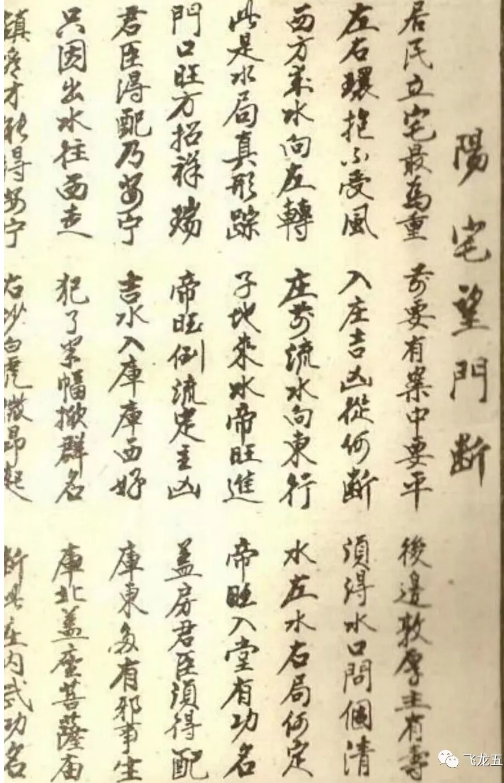 陽宅望門断
居民立宅最為重 前要有案中要平 後邊敦厚主有壽
左右環抱不受風 入庄吉凶從何断 須得水口問個清
西方來水向左轉 庄前流水向東行 水左水右局何定
此是水局真形踪 子地來水帝旺進 帝旺入堂有功名
門口旺方招祥瑞 帝旺倒流定主凶 盖房君臣須得配
君臣得配乃安宁 吉水入庫庫西好 庫東多有邪事生
只因出水往西走 犯了幅掀群名 庫北盖座菩薩庙
才能得安宁 右沙白虎昂起 断此庄内武功名
飞龙五